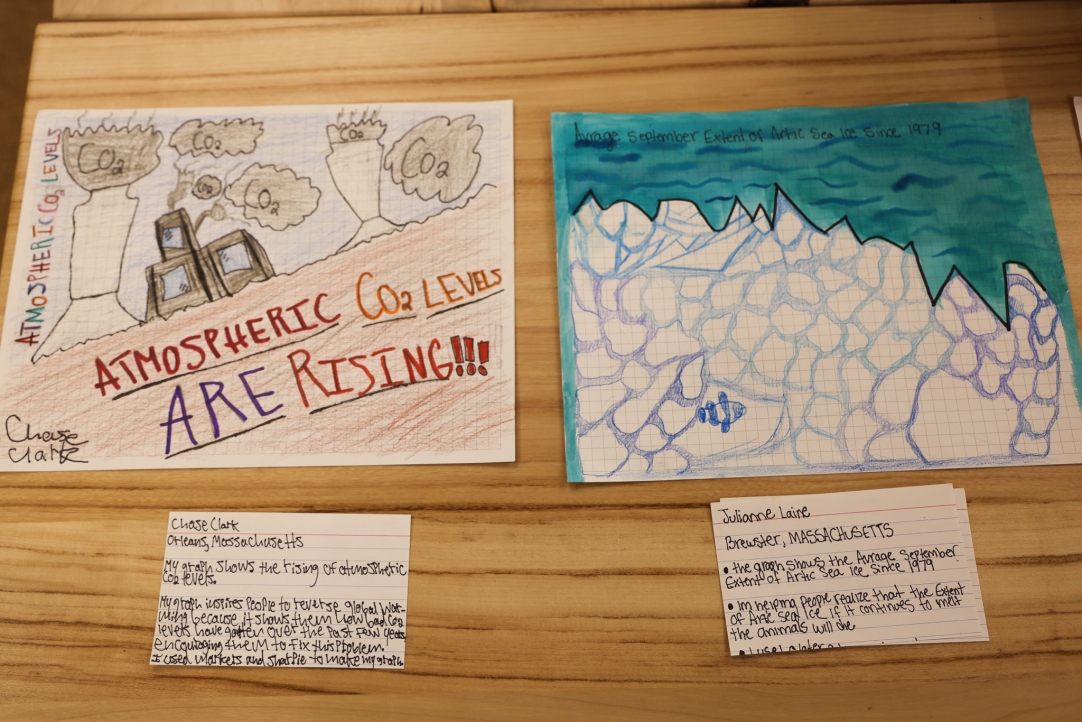 ATMOSPHERIC CO2 LEVELS
CO2
CO2
CO2
CO2
CO2
CO2
ATMOSPHERIC CO2 LEVELS
ARE RISING!!!
Chase
Clark
Avrage September Extent of Artic Sea Ice Since 1979
Chase Clark
Orleans, Massachusetts
My graph shows the rising of atmospheric
CO2 levels.
My graph inspires People to reverse global War-
ming because it shows them how bad CO2
levels have gotten over the Past Few years
encouraging them to fix this Problem.
I used Markers and sharpie to make my graph
Julianne Laine
Brewster, MASSACHUSETTS
• the graph shows the Avrage September
Extent of Artic Sea Ice Since 1979
• Im helping people realize that the Extent
of Artic Seal Ice if it continues to melt
the animals will die
• I used